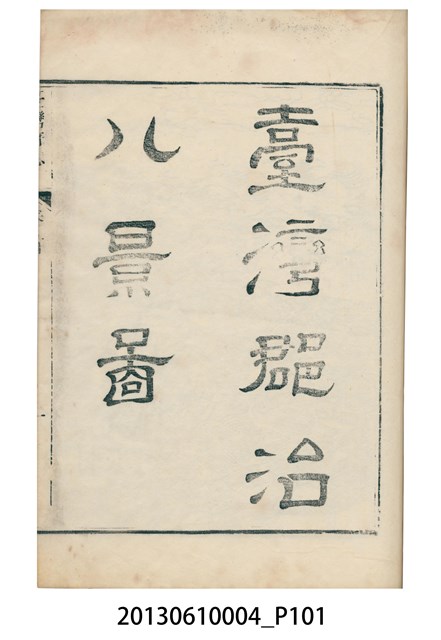 臺灣郡治
八景圖
20130610004_P101